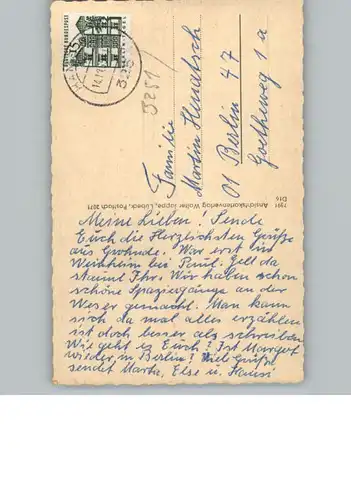 DEUTSCHE BUNDESPOST
15
HAM
14.11
325
3251
Familie
Martin Henatsch
01 Berlin 47
Goetheweg 1a
Ansichtkartenverlag Wolter Juppe, Lübeck, Postfach 2071
D16
Meine Lieben! Sende
Euch die Herzlichsten Grüße
aus Grohnde. War erst in
Weinheim bei Paul. Gell da
staunt Ihr. Wir haben schon
schöne Spaziergänge an der
Weser gemacht. Man kann
sich da mal alles erzählen
ist doch besser als schreiben
Wie geht es Euch! Ist Margot
wieder in Berlin! Viele Grüße
sendet Martha, Else u. Hansi